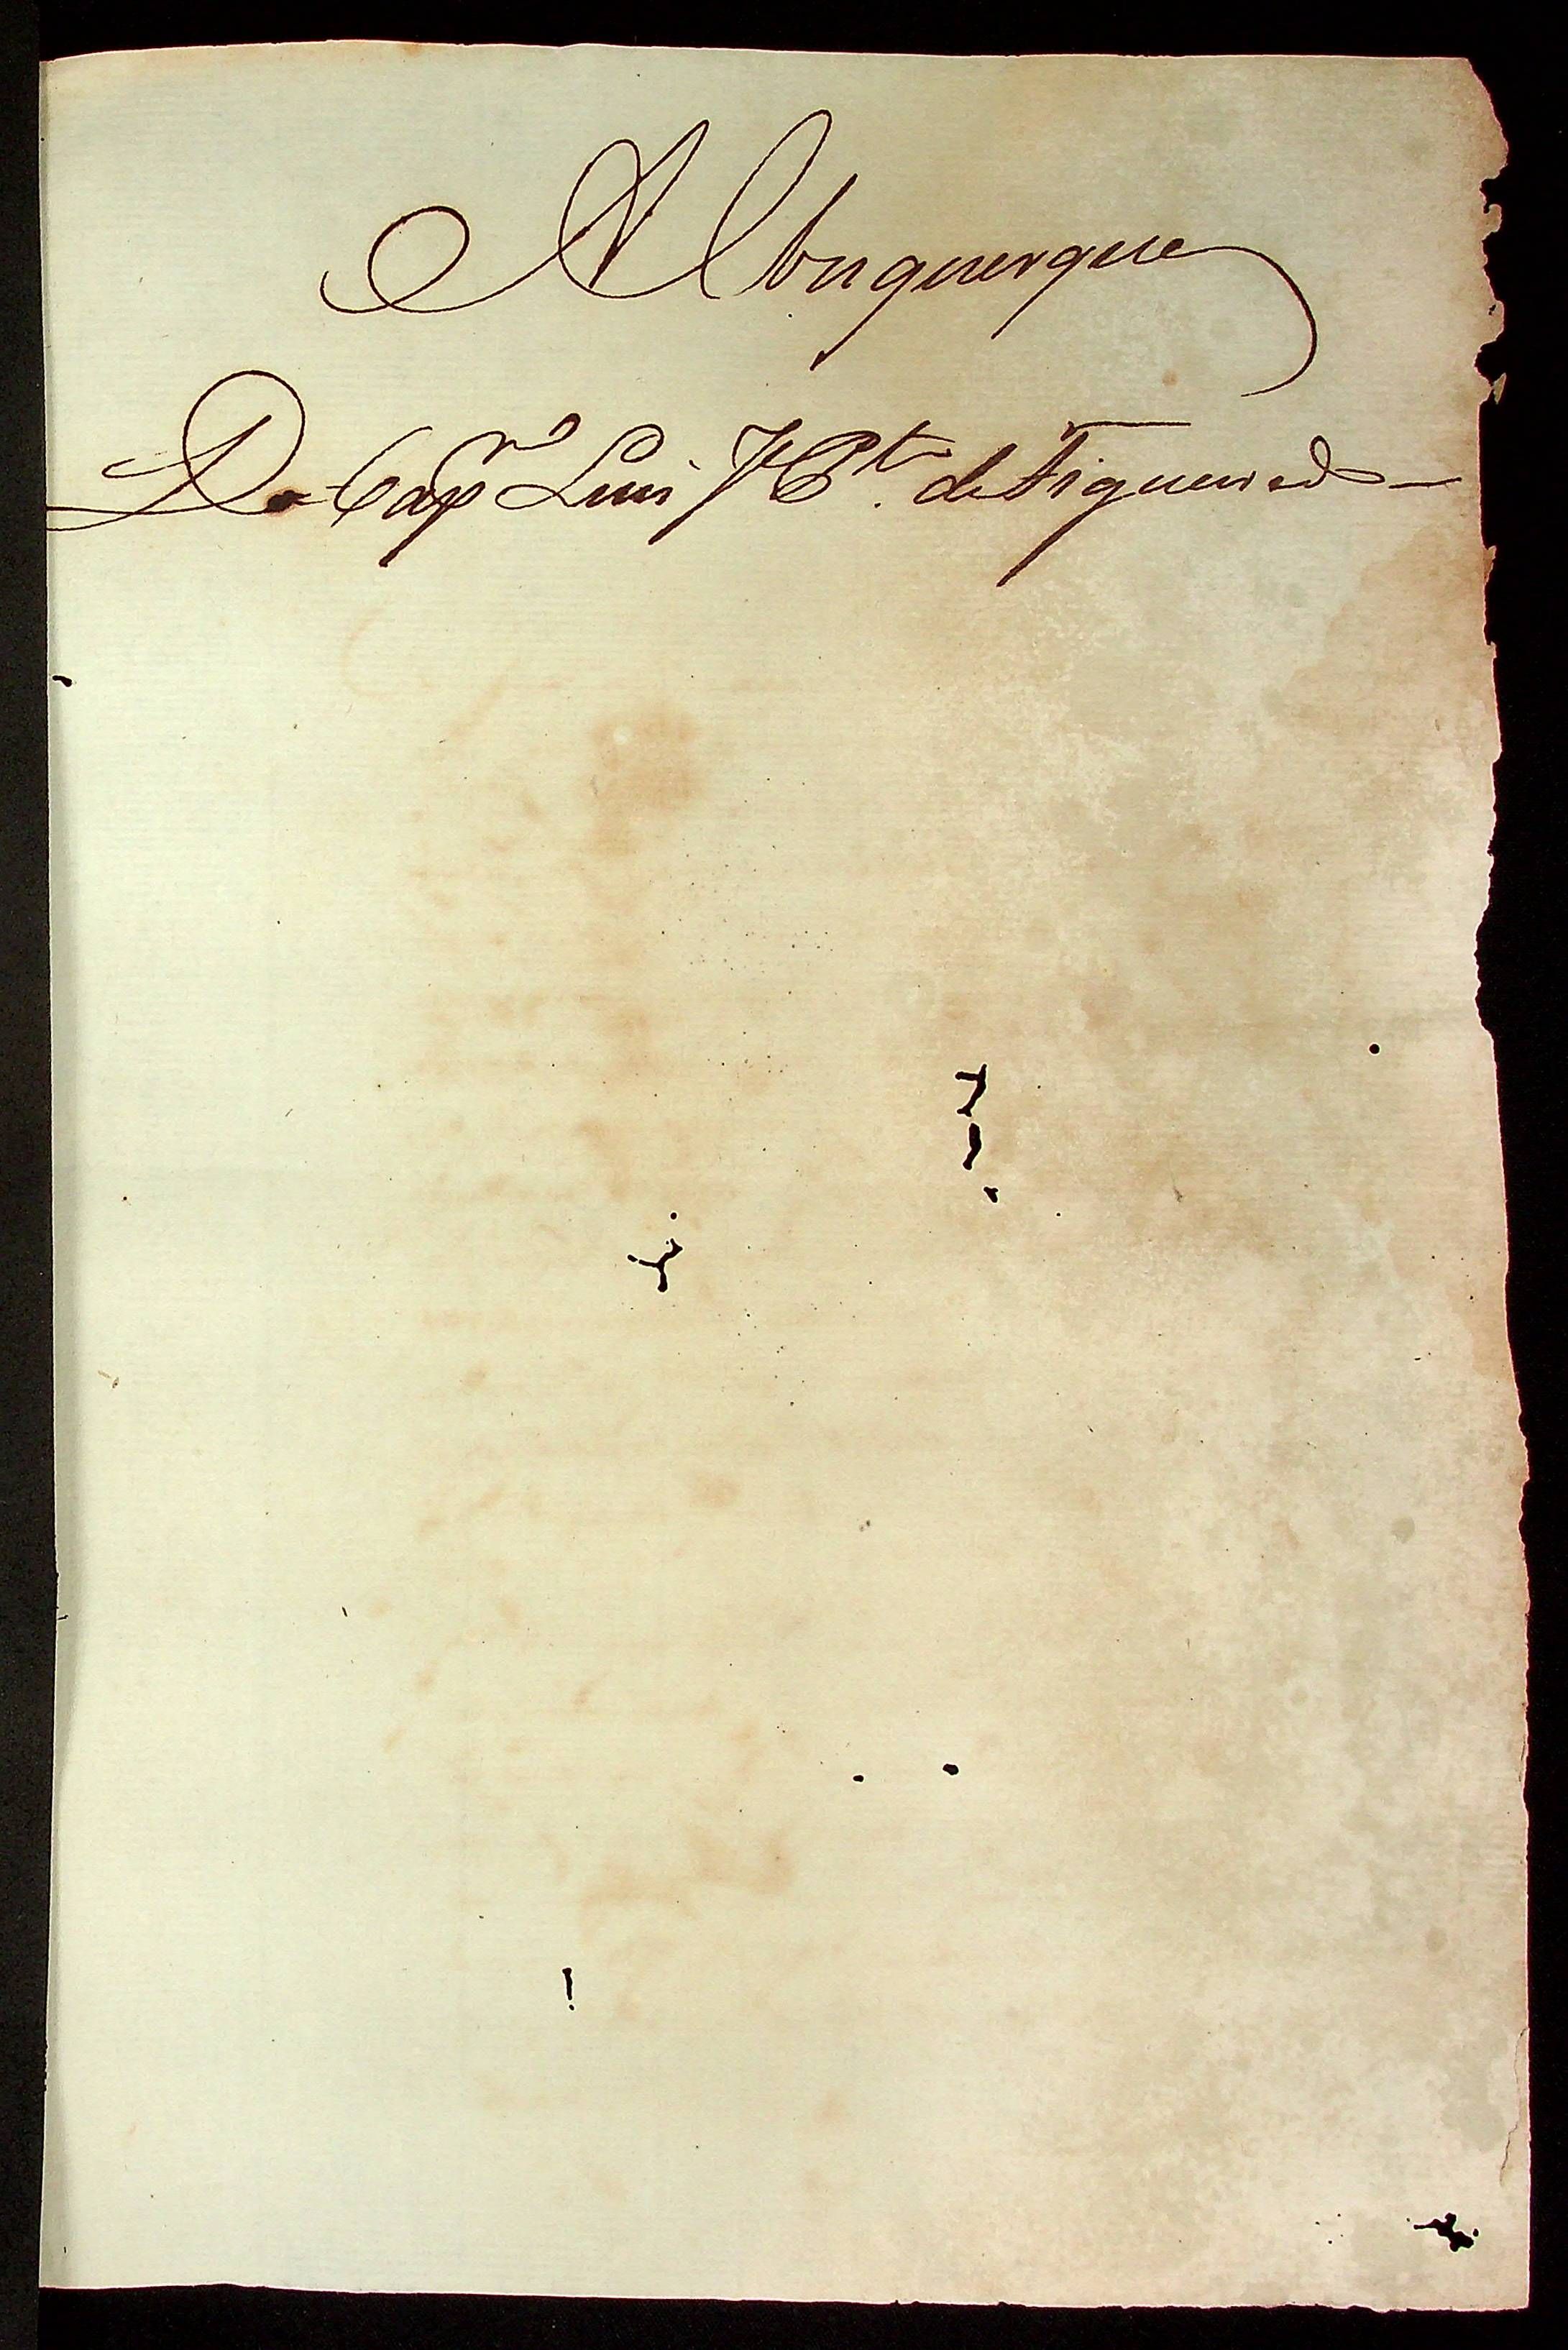 Albuquerque
Do Capm Luis Je Pto. de Figueiredo